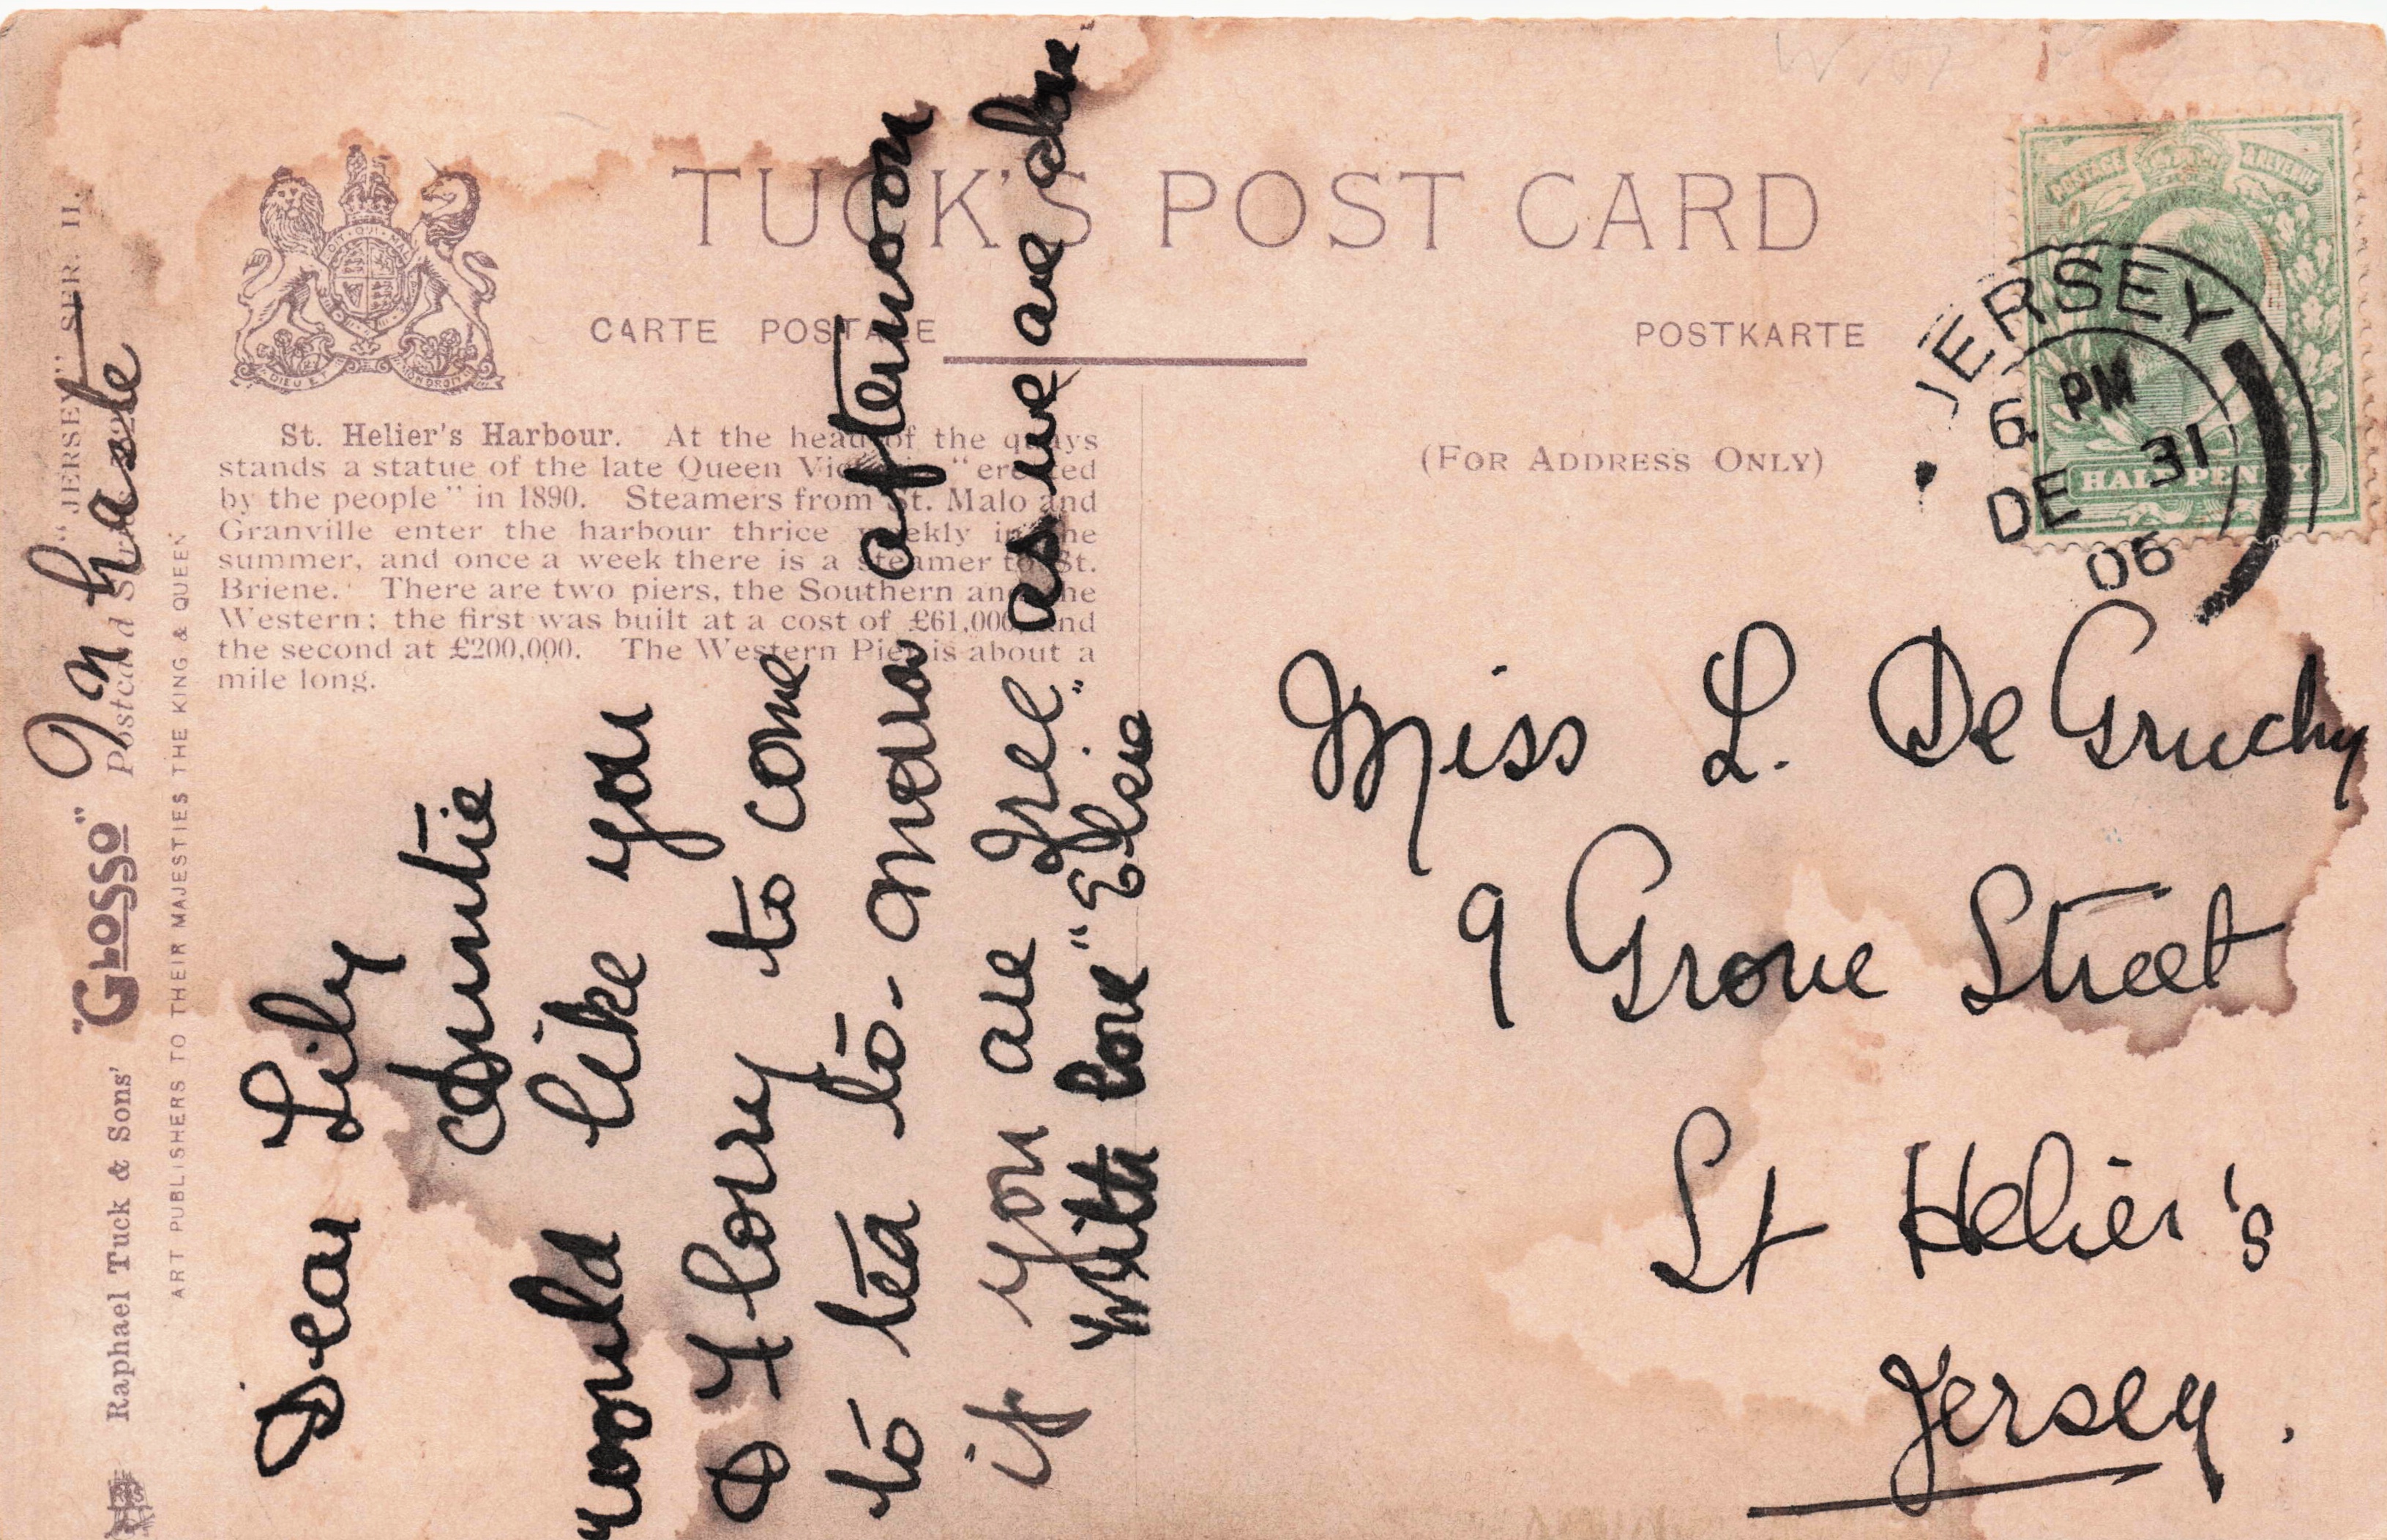 TUCK'S POST CARD
CARTE POSTALE
POSTKARTE
(FOR ADDRESS ONLY)
St. Helier's Harbour. At the head of the quays
stands a statue of the late Queen Victoria "erected
by the people" in 1890. Steamers from St. Malo and
Granville enter the harbour thrice weekly in the
summer, and once a week there is a steamer to St.
Briene. There are two piers, the Southern and the
Western; the first was built at a cost of £61,000, and
the second at £200,000. The Western Pier is about a
mile long.
DIEU ET MON DROIT
"JERSEY" SER. II.
Raphael Tuck & Sons' "GLOSSO" Postcard
ART PUBLISHERS TO THEIR MAJESTIES THE KING & QUEEN
In haste
Dear Lily
Auntie
would like you
& Flory to come
to tea to-morrow afternoon
if you are free" as we are alone
With love "Elsie"
POSTAGE & REVENUE
HALFPENNY
JERSEY
6 PM
DE 31
06
Miss L. De Gruchy
9 Grove Street
St Helier's
Jersey.